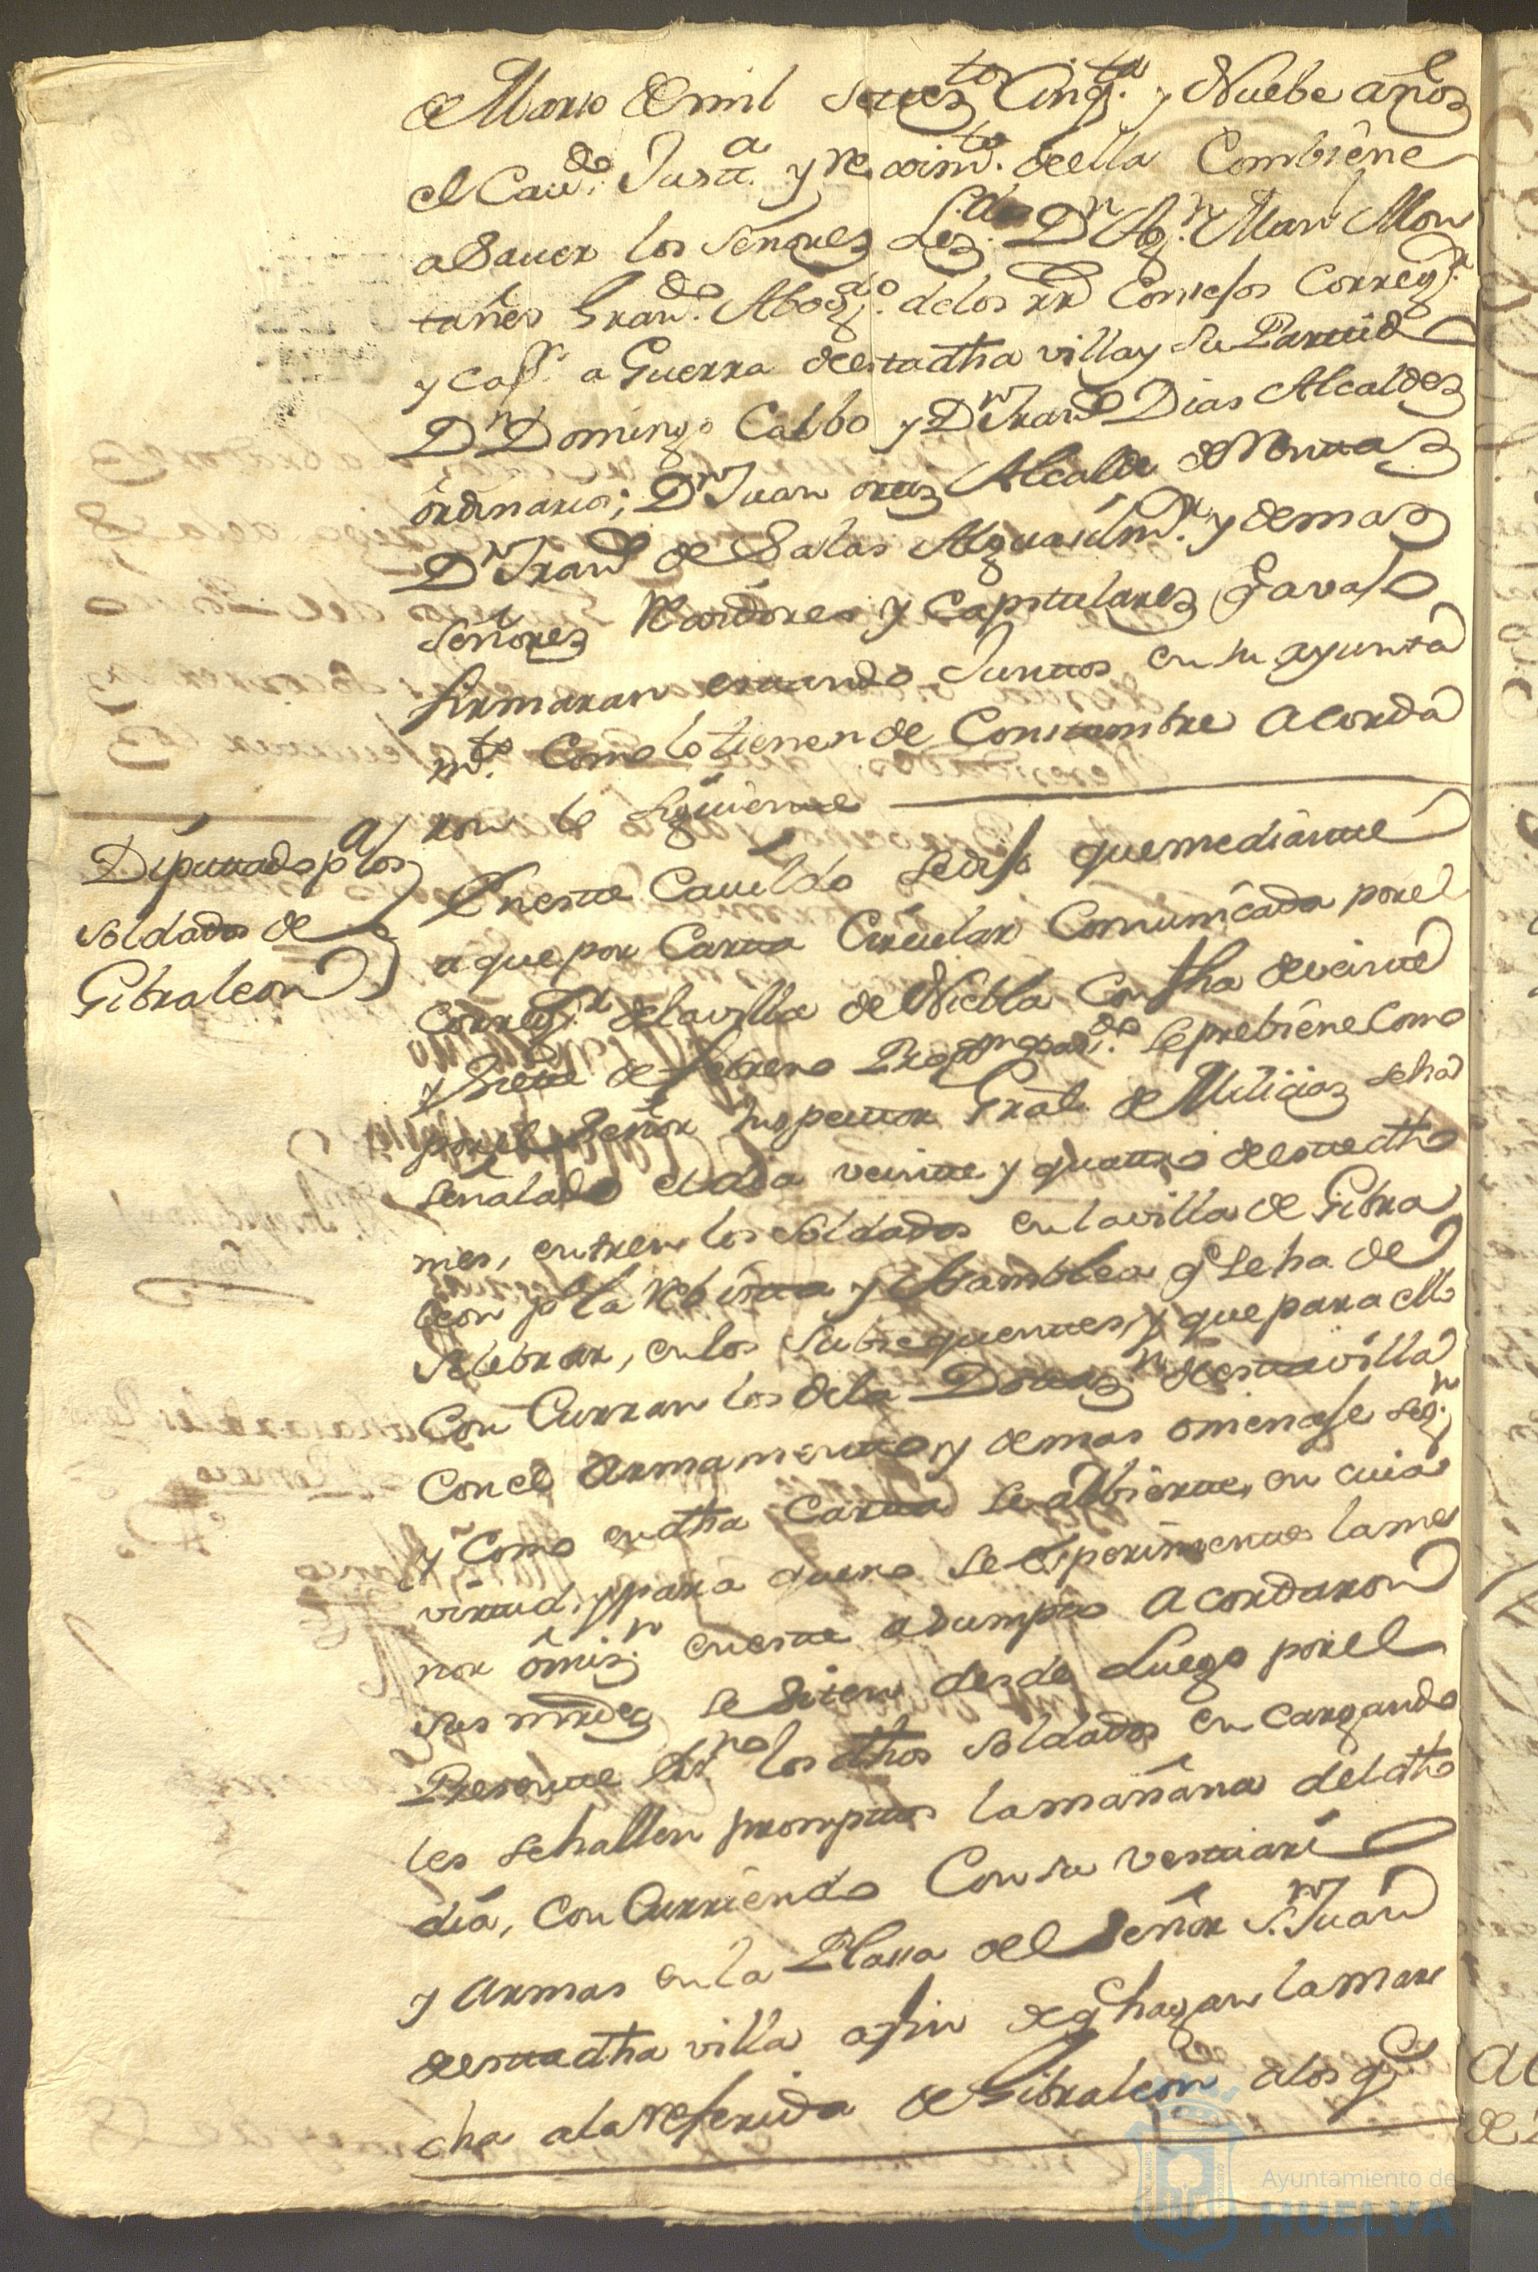 de Marzo de mil setez.tos Cinq.ta y Nuebe años
el Cav.do Just.a y rexim.to de ella Combiene
a Saver los Señores Lz.do D.n Ag.n Man.l Mon
tañes Gran.do Abog.do de los RR Consejos Correg.r
y cap.n a Guerra de esta dha villa y su Partido
D.n Domingo Calbo y D.n Fran.co Dias Alcaldes
ordinarios; D.n Juan ortiz Alcalde de Rentas
D.n Fran.co de Salas Alguasil m.r y demas
señores Rexidores y Capitulares q avajo
firmaran estando Juntos en su ayunta
m.to Como lo tienen de Constumbre acorda
ron lo siguiente
Diputado p.a los
soldados de
Gibraleon
En este Cavildo se dijo que mediante
a que por Carta Circular Comunicada por el
Correg.r de la villa de Niebla Con fha de veinte
y siete de febrero Prox.mo pas.do se prebiene Como
por el Señor Inspector Gral de Milicias se ha
señalado el dia veinte y quattro de este dho
mes, entren los soldados en la villa de Gibra
leon p.a la Rebista y Asamblea q se ha de
Selebrar, en los subsequentes, y que para ello
Con Curran los de la Dotaz.n de esta villa
Con el armamento y demas omenaje seg.n
y Como en dha Carta se adbierte, en cuia
virtud, y para que no se esperimente la me
nor omiz.n en este asumpto acordaron
sus mrdes se Siten desde Luego por el
Presente Ess.no los dhos soldados en cargando
les se hallen promptos la mañana del dho
dia, con Curriendo Con su vestuario
y armas en la Plasa del Señor S.n Juan
de esta dha villa a fin de q hagan la mar
cha a la referida de Gibraleon a los q.e
Ayuntamiento de
HUELVA